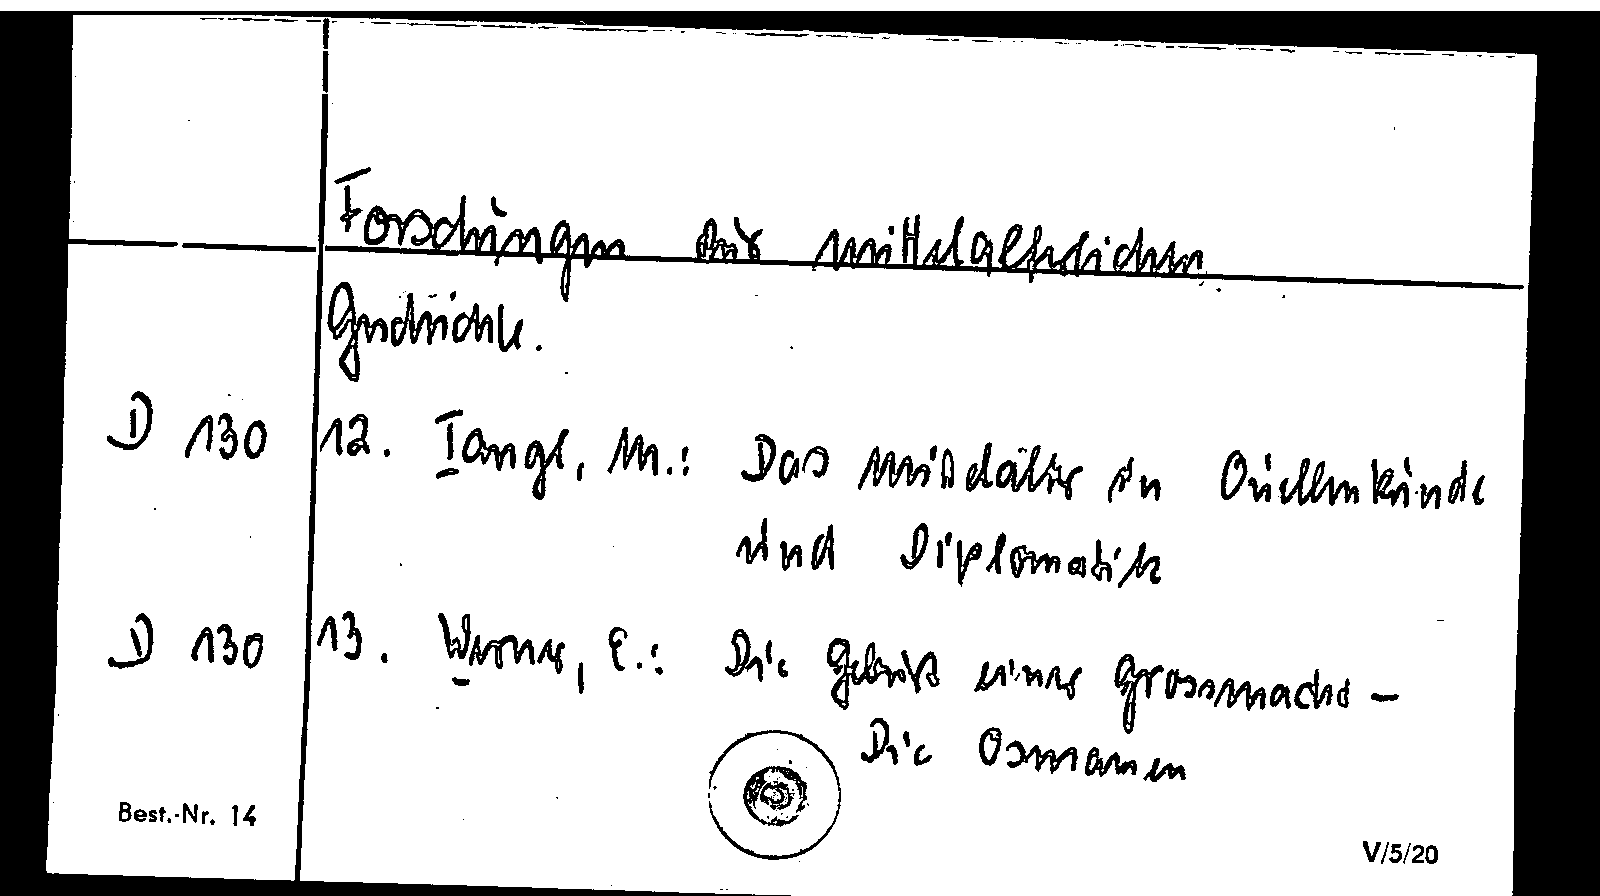 Forschungen zur mittelalterlichen
Geschichte.
D 130 12. Tangl, M.: Das Mittelalter in Quellenkunde
und Diplomatik
D 130 13. Werner, E.: Die Geburt einer Grossmacht -
Die Osmanen
Best.-Nr. 14
V/5/20